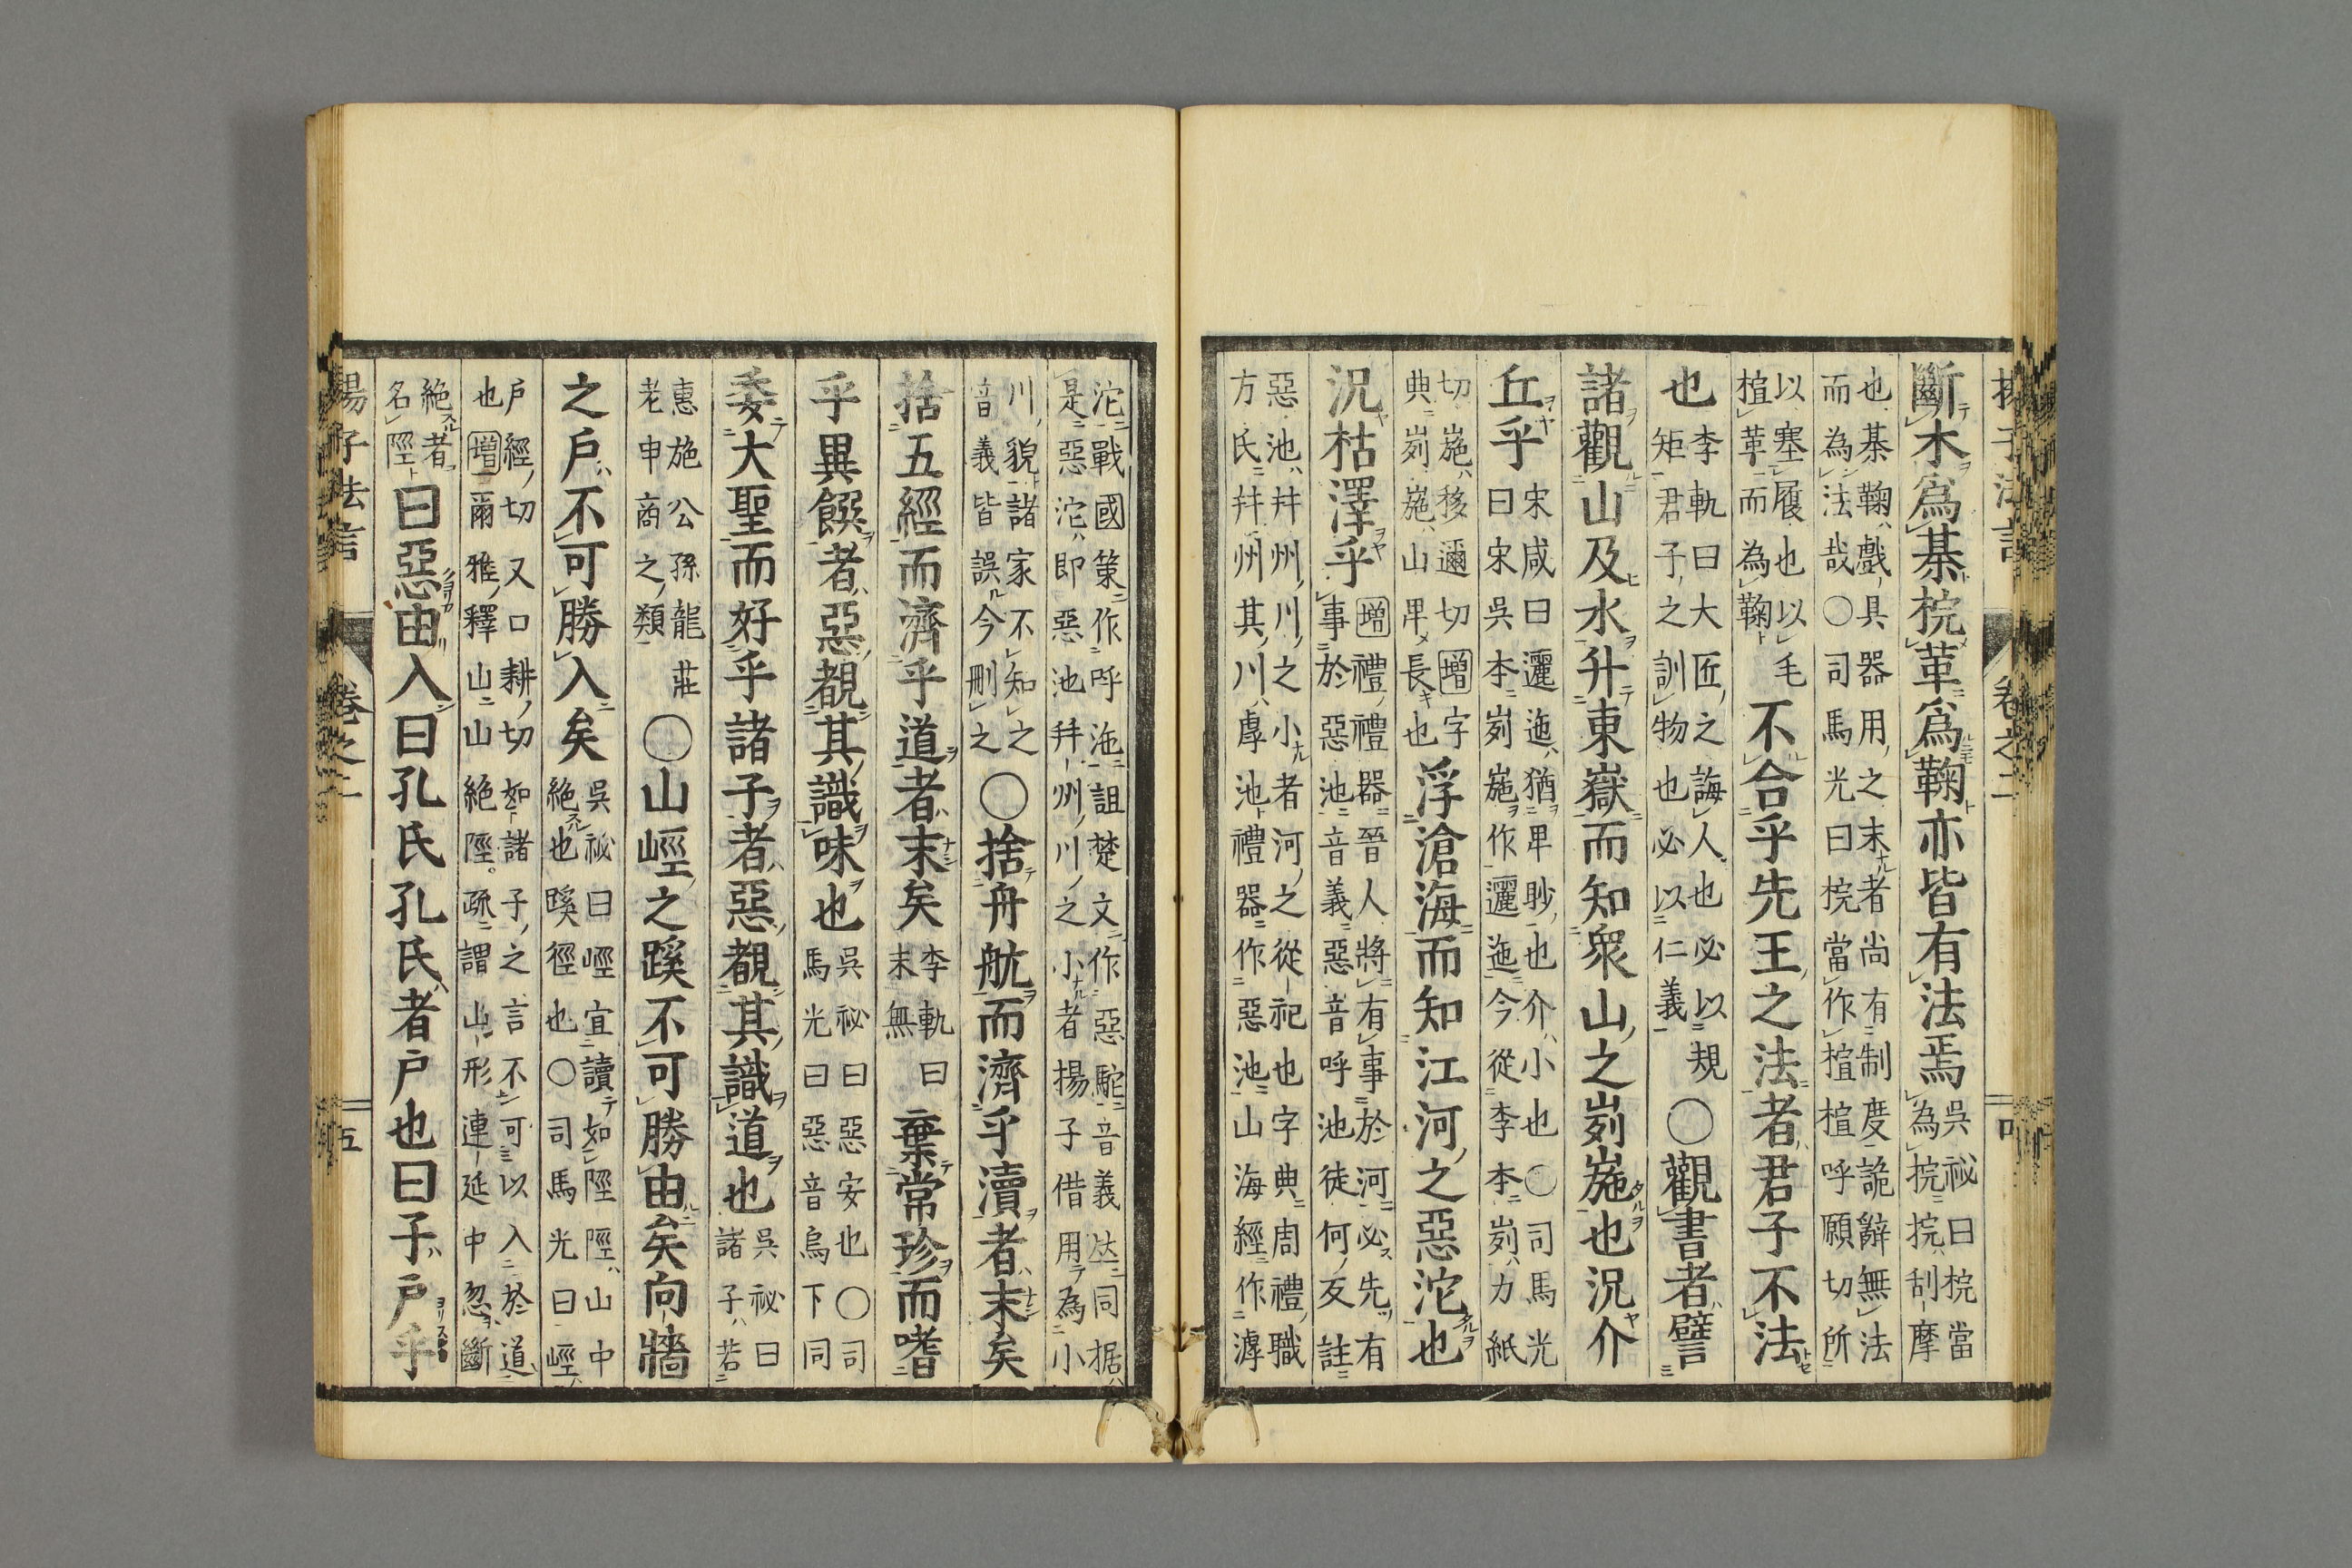 揚子法言 卷之二
斷木爲棊捖革爲鞠亦皆有法焉 吳祕曰捖當
為捖捖刮摩
也棊鞠戲具器用之末者尚有制度詭辭無法
而為法哉〇司馬光曰捖當作楦楦呼願切所
以塞履也以毛
楦革而為鞠 不合乎先王之法者君子不法
也 李軌曰大匠之誨人也必以規
矩君子之訓物也必以仁義 〇觀書者譬
諸觀山及水升東嶽而知衆山之峛崺也況介
丘乎 宋咸曰邐迤猶卑眇也介小也〇司馬光
曰宋吳本峛崺作邐迤今從李本峛力紙
切崺移邇切增字
典峛崺山卑長也 浮滄海而知江河之惡沱也
況枯澤乎 增禮禮器晉人將有事於河必先有
事於惡池音義惡音呼池徒何反註
惡池幷州川之小者河之從祀也字典周禮職
方氏幷州其川虖池禮器作惡池山海經作滹
沱戰國策作呼沲詛楚文作惡駝音義㳫同据
是惡沱即惡池幷州川之小者揚子借用為小
川貌諸家不知之
音義皆誤今刪之 〇捨舟航而濟乎瀆者末矣
捨五經而濟乎道者末矣 李軌曰
末無 棄常珍而嗜
乎異饌者惡覩其識味也 吳祕曰惡安也〇司
馬光曰惡音烏下同
委大聖而好乎諸子者惡覩其識道也 吳祕曰
諸子若
惠施公孫龍莊
老申商之類 〇山峌之蹊不可勝由矣向牆
之戶不可勝入矣 吳祕曰峌宜讀如陘陘山中
絶也蹊徑也〇司馬光曰峌
戶經切又口耕切如諸子之言不可以入於道
也增爾雅釋山山絶陘疏謂山形連延中忽斷
絶者
名陘 曰惡由入曰孔氏孔氏者戶也曰子戶乎
揚子法言 卷之二 五